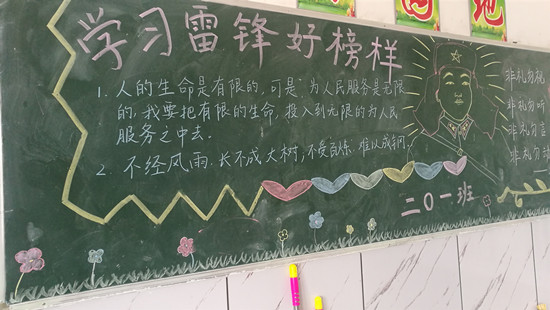 学习雷锋好榜样
1. 人的生命是有限的,可是,为人民服务是无限
的,我要把有限的生命,投入到无限的为人民
服务之中去。
2. 不经风雨,长不成大树,不受百炼,难以成钢。
二〇一班
非礼勿视
非礼勿听
非礼勿言
非礼勿动
地